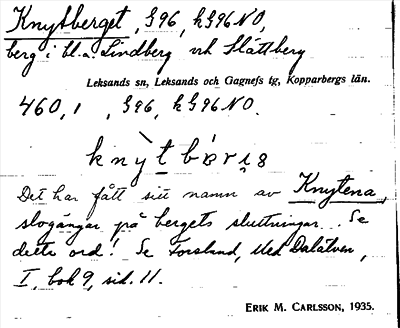 Knytberget, G96, kG96NO,
berg i bl.a. Lindberg och Slättberg
Leksands sn, Leksands och Gagnefs tg, Kopparbergs län.
460,1, G96, kG96NO.
Det har fått sitt namn av Knytena,
slogångar på bergets sluttningar. Se
detta ord! Se Forslund, Med Dalälven,
I, bok 9, sid. 11.
ERIK M. CARLSSON, 1935.